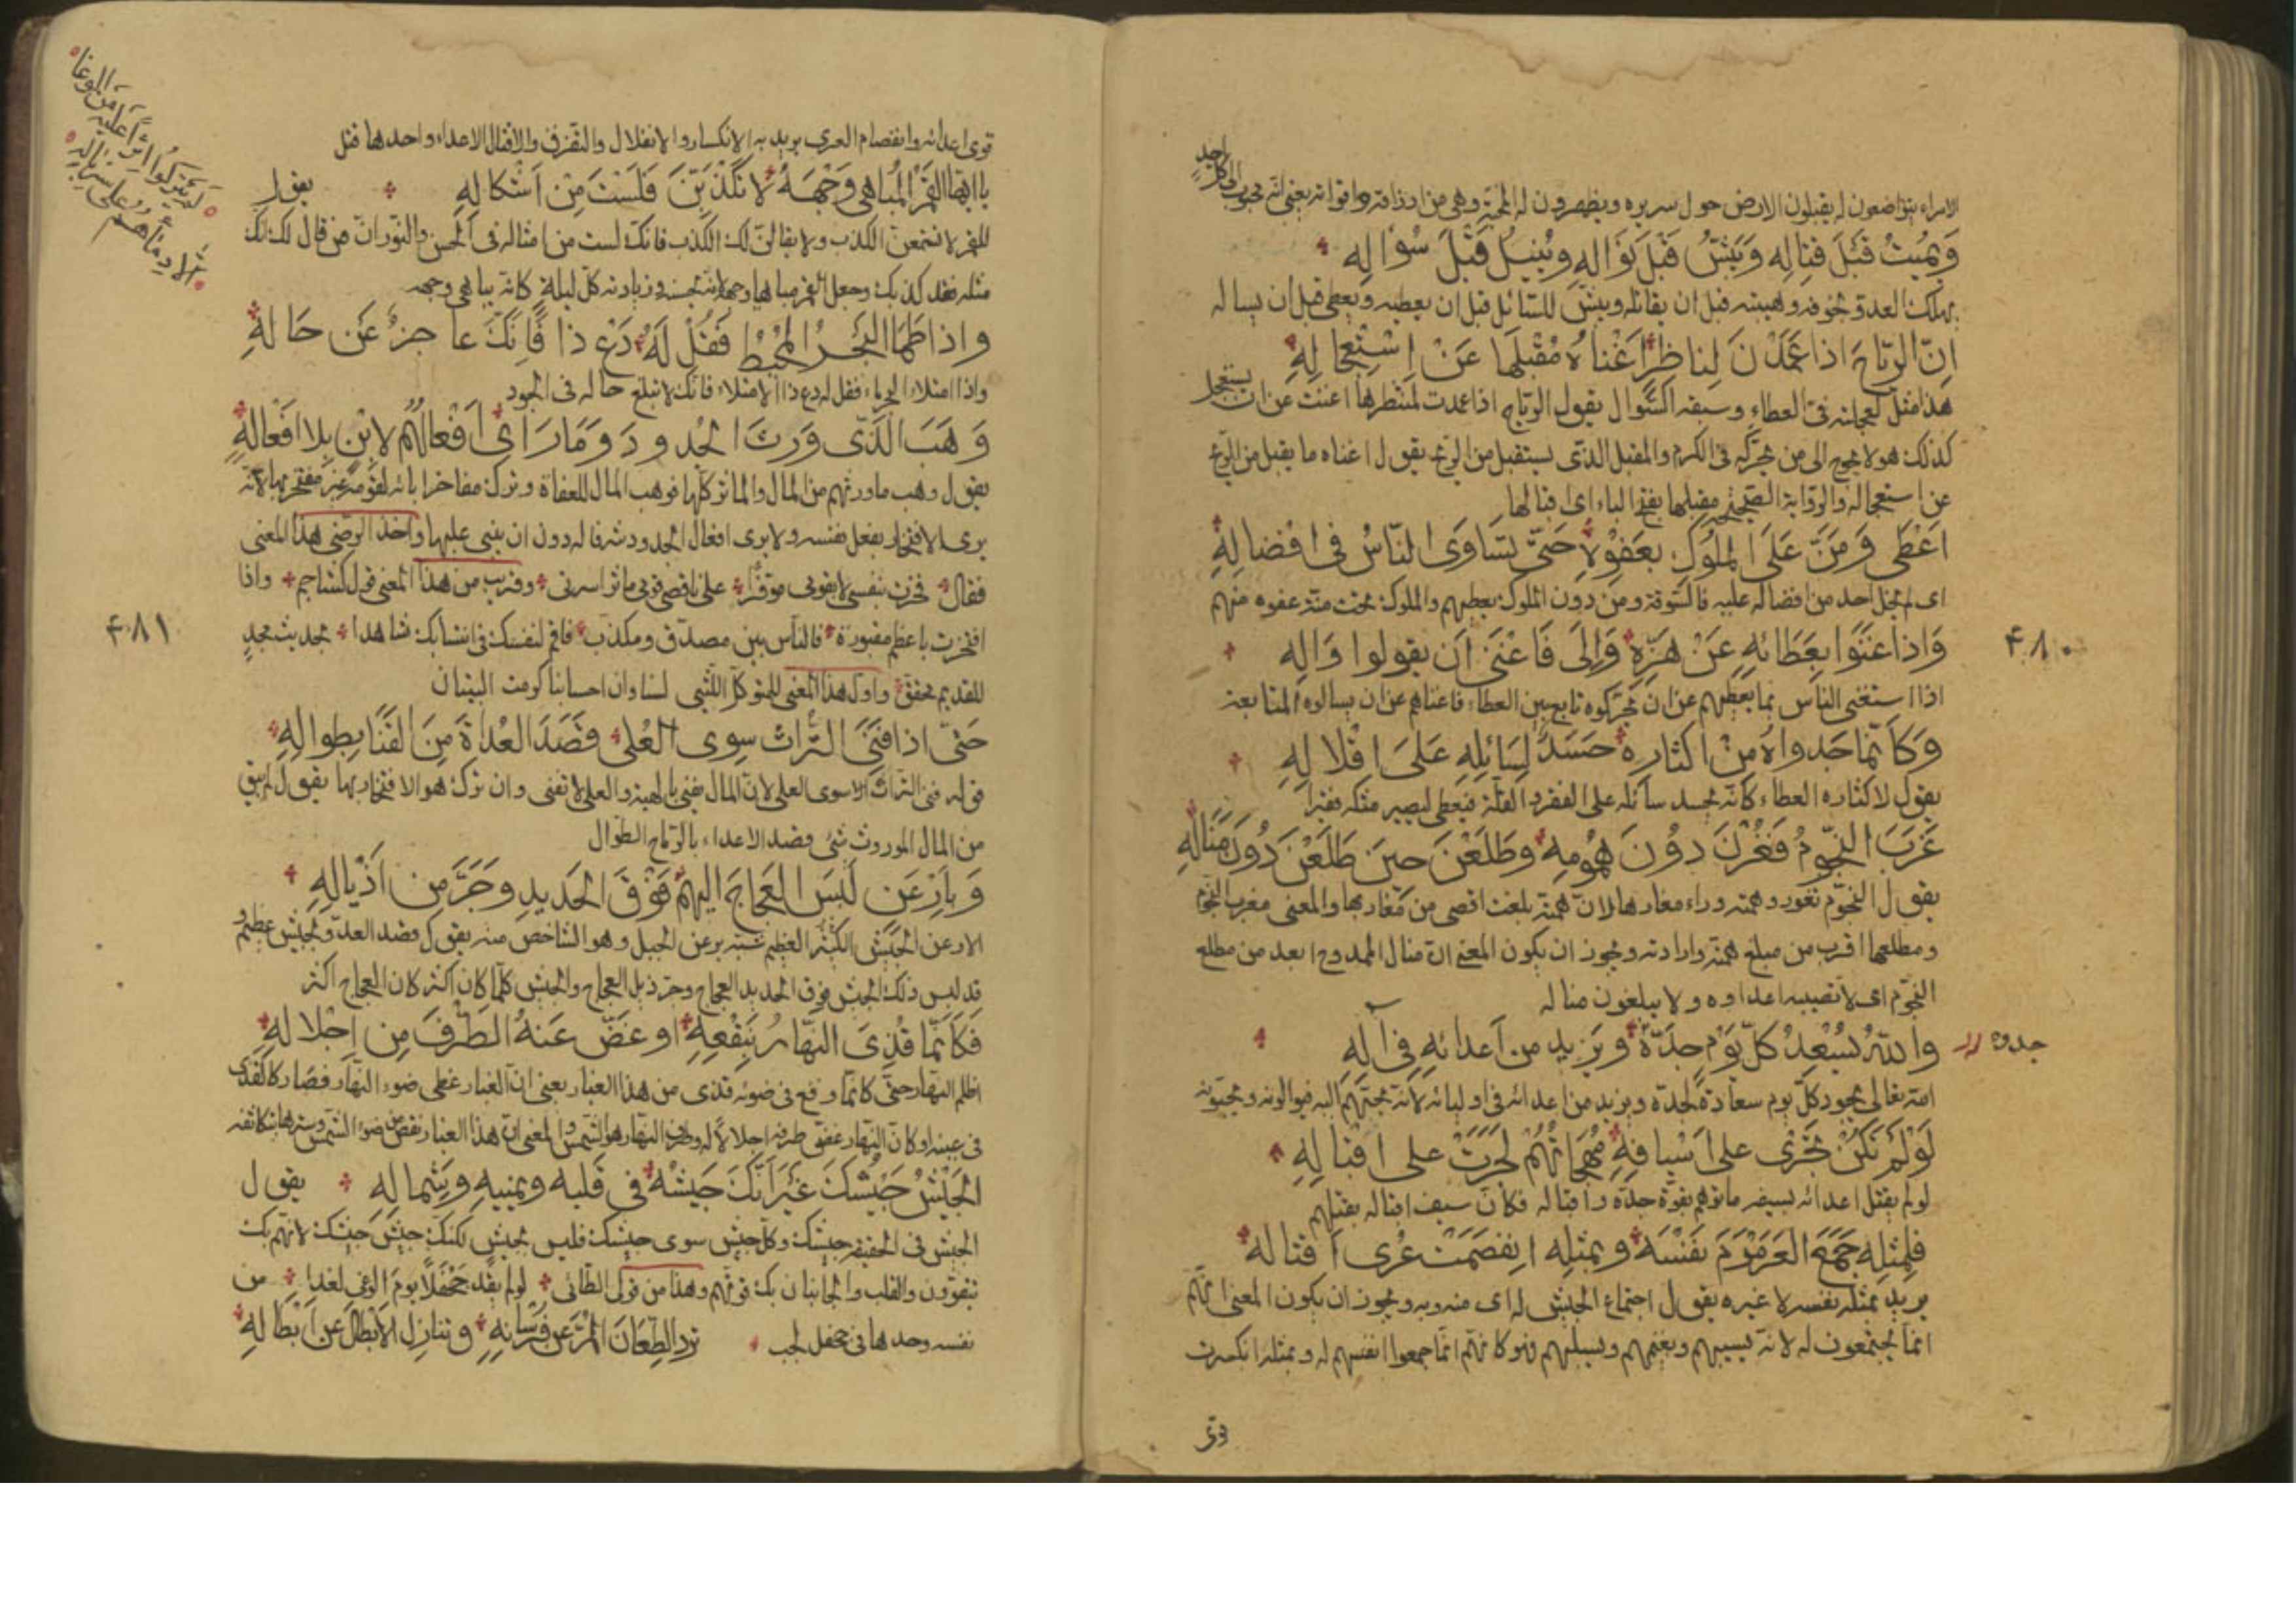 الامراء يتواضعون له يقبلون الارض حول سريره ويظهرون له المحبة وهى من ارذاقه واقواته يعنى انه محبوب الى كل احد
وَيُمِيتُ قَبْلَ قِتالِهِ وَيَبَشُّ قَبْلَ نَوَالِهِ وَيُنيلُ قَبْلَ سُؤالِهِ
يهلك العدو بخوفه وهيبته قبل ان يقاتله ويبش للسائل قبل ان يعطيه ويعطى قبل ان يساله
اِنّ الرِّياحَ اذا عَمَدْنَ لِناظِرٍ اَغْناهُ مُقْبِلُها عَنْ اِسْتِعْجالِهِ
هذا مثل لعجلته فى العطاء وسبقه السؤال يقول الرياح اذا عمدت لمنتظرها اغنت عن ان يستعجل
كذلك هو لا يحوج الى من يحركه فى الكرم والمقبل الذى يستقبل من الريح يقول اغناه ما يقبل من الريح
عن استعجاله والرواية الصحيحة مقبلها بفتح الباء اى اقبالها
اَعْطَى وَمَنَّ عَلَى المُلوكِ بِعَفْوِهِ حَتّى تَسَاوَى النّاسُ فى اِفْضالِهِ
اى لم يخل احد من افضاله عليه فالسوقة ومن دون الملوك يعطيهم والملوك تحت منة عفوه عنهم
وَاِذا غَنُوا بِعَطَائِهِ عَنْ هَزِّهِ وَالَى فَاَغْنَى اَنْ يقولوا وَالِهِ
اذا استغنى الناس بما يعطيهم عن ان يحركوه تابع بين العطاء فاغناهم عن ان يسالوه المتابعة
وَكَاَنّما جَدْواهُ مِنْ اِكْثارِهِ حَسَدٌ لِسائِلِهِ عَلَى اِقْلالِهِ
يقول لاكثاره العطاء كانه يحسد سائله على الفقر والقلة فيعطى ليصير مثله فقيرا
غَرَبَ النُّجومُ فَغُرْنَ دُونَ هُمُومِهِ وطَلَعْنَ حينَ طَلَعْنَ دُونَ مَنَالِهِ
يقول النجوم تغور وهمته وراء مغارها لان همته بلغت اقصى من مغاربها والمعنى مغرب النجوم
ومطلعها اقرب من مبلغ همته وارادته ويجوز ان يكون المعنى ان منال الممدوح ابعد من مطلع
النجوم اى لا تصيبه اعداوه ولا يبلغون مناله
واللهُ يُسْعِدُ كلَّ يَوْمٍ جِدَّهُ وَيَزيد من اَعدائِهِ فى آلِهِ
جده
الله تعالى يجود كل يوم سعادة لجده ويزيد من اعدائه فى اوليائه لانه يحبهم اليه فيوالونه ويحبونه
لَوْ لَمْ تَكُنْ تَجْرِى على اَسْيافِهِ مُهَجَاتُهُمْ لَجَرَتْ على اِقْبالِهِ
لو لم يقتل اعدائه بسيفه ماتوا بقوة جده واقباله فكان سيف اقباله يقتلهم
فَلِمِثْلِهِ جَمَعَ العَرَمْرَمُ نَفْسَهُ وبمثلِهِ انفَصَمَتْ عُرَى اَقْتالِهِ
يريد بمثله نفسه لا غيره يقول اجتماع الجيش له اى منه وبه ويجوز ان يكون المعنى انهم
انما يجتمعون له لانه يسبيهم ويغنمهم ويسلبهم فهو كانهم انما جمعوا انفسهم له وبمثله انكسرت
٤٨٠
قوى
قوى اعدائه وانفصام العرى يريد به الانكسار والانفلال والتفرق والاقتال الاعداء واحدها قتل
يا ايّها القَمَرُ المُباهى وَجْهَهُ لا تُكْذَبَنَّ فَلَسْتَ مِنْ اَشْكالِهِ يقول
للقمر لا تسمعن الكذب ولا يقالن لك الكذب فانك لست من امثاله فى الحسن والنور ان من قال لك انك
مثله فقد كذبك وجعل القمر مباهيا وجهه لانه بحسنه وزيادته كل ليلة كانه يباهى وجهه
واِذا طَما البَحْرُ المُحِيْطُ فَقُلْ لَهُ دَعْ ذا فَاِنَّكَ عاجِزٌ عَن حَالِهِ
واذا امتلاء البحر ماء فقل له دع ذا الامتلاء فانك لا تبلغ حاله فى الجود
وَهَبَ الَّذى وَرِثَ الجُدودَ وَمَا رَاَى اَفْعالَهُم لاِبْنٍ بِلا اَفْعالِهِ
يقول وهب ما ورثهم من المال والماثر كلها فوهب المال للعفاة وترك مفاخر ابائه لقومه غير مفتخر بها لانه
يرى الافتخار بفعل نفسه ولا يرى افعال الجدود شرفا له دون ان يبنى عليها واخذ الرضى هذا المعنى
فقال فخرت بنفسى لا بقومى موفرا على ناقصى قومى ماثر اسرتى وقريب من هذا المعنى قول كشاجم واذا
افتخرت باعظم مقبورة فالناس بين مصدق ومكذب فاقم لنفسك فى انتسابك شاهدا بحديث مجد
للقديم محقق واول هذا المعنى للمتوكل الليثى لسنا وان احسابنا كرمت البيتان
حَتّى اذا فَنِىَ التُّراثُ سِوَى العُلى قَصَدَ العُداةَ مِنَ القَنَا بِطِوالِهِ
قوله فنى التراث سوى العلى لان المال يفنى بالهبة والعلى لا تفنى وان ترك هو الافتخار بها يقول لم يبق
من المال الموروث شئ قصد الاعداء بالرماح الطوال
وَبِاَرْعَنٍ لَبِسَ العَجاجَ اِلَيهمُ فَوْقَ الحَديدِ وجَرَّ مِن اَذْيالِهِ
الارعن الجيش الكثير العظيم شبه برعن الجبل وهو الشاخص منه يقول قصد العدو بجيش عظيم و
قد لبس ذلك الجيش فوق الحديد العجاج وجر ذيل العجاج والجيش كلما كان اكثر كان العجاج اكثر
فَكَاَنَّما قَذِىَ النّهارُ بِنَقْعِهِ او غَضَّ عَنهُ الطَّرْفَ مِن اِجْلالِهِ
اظلم النهار حتى كانما وقع فى ضوئه قذى من هذا الغبار يعنى ان الغبار غطى ضوء النهار فصار كالقذى
فى عينه او كان النهار غض طرفه اجلالا له وطرف النهار هو الشمس والمعنى ان هذا الغبار نقص من ضوء الشمس وسترها بتكاثفه
الجَيْشُ جَيْشُكَ غَيْرَ اَنَّكَ جَيْشُهُ فى قَلبه ويمينِهِ وشِمالِهِ يقول
الجيش فى الحقيقة جيشك وكل جيش سوى جيشك فليس بجيش لكنك جيش جيشك لانهم بك
يتقوون والقلب والجانبان بك قوتهم وهذا من قول الطائى لو لم يقد جحفلا يوم الوغى لغدا من
نفسه وحدها فى جحفل لجب تَرِدُ الطِّعانَ المُرَّ عن فُرْسانِهِ وتنازِل الاَبطالَ عَن اَبْطالِهِ
٤٨١